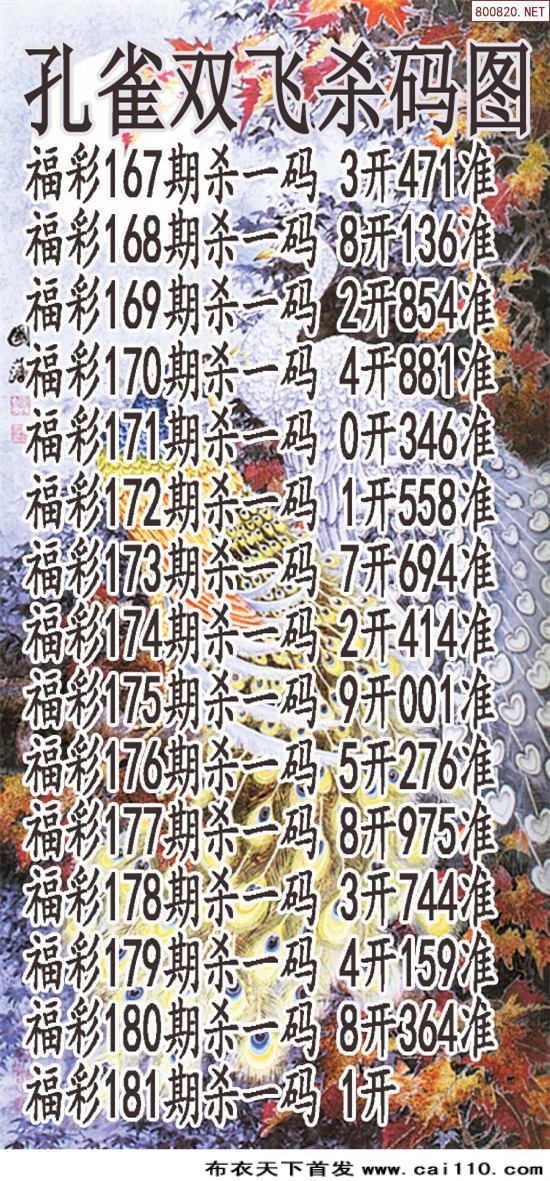 800820.NET
孔雀双飞杀码图
福彩167期杀一码 3开471准
福彩168期杀一码 8开136准
福彩169期杀一码 2开854准
福彩170期杀一码 4开881准
福彩171期杀一码 0开346准
福彩172期杀一码 1开558准
福彩173期杀一码 7开694准
福彩174期杀一码 2开414准
福彩175期杀一码 9开001准
福彩176期杀一码 5开276准
福彩177期杀一码 8开975准
福彩178期杀一码 3开744准
福彩179期杀一码 4开159准
福彩180期杀一码 8开364准
福彩181期杀一码 1开
布衣天下首发 www.cai110.com